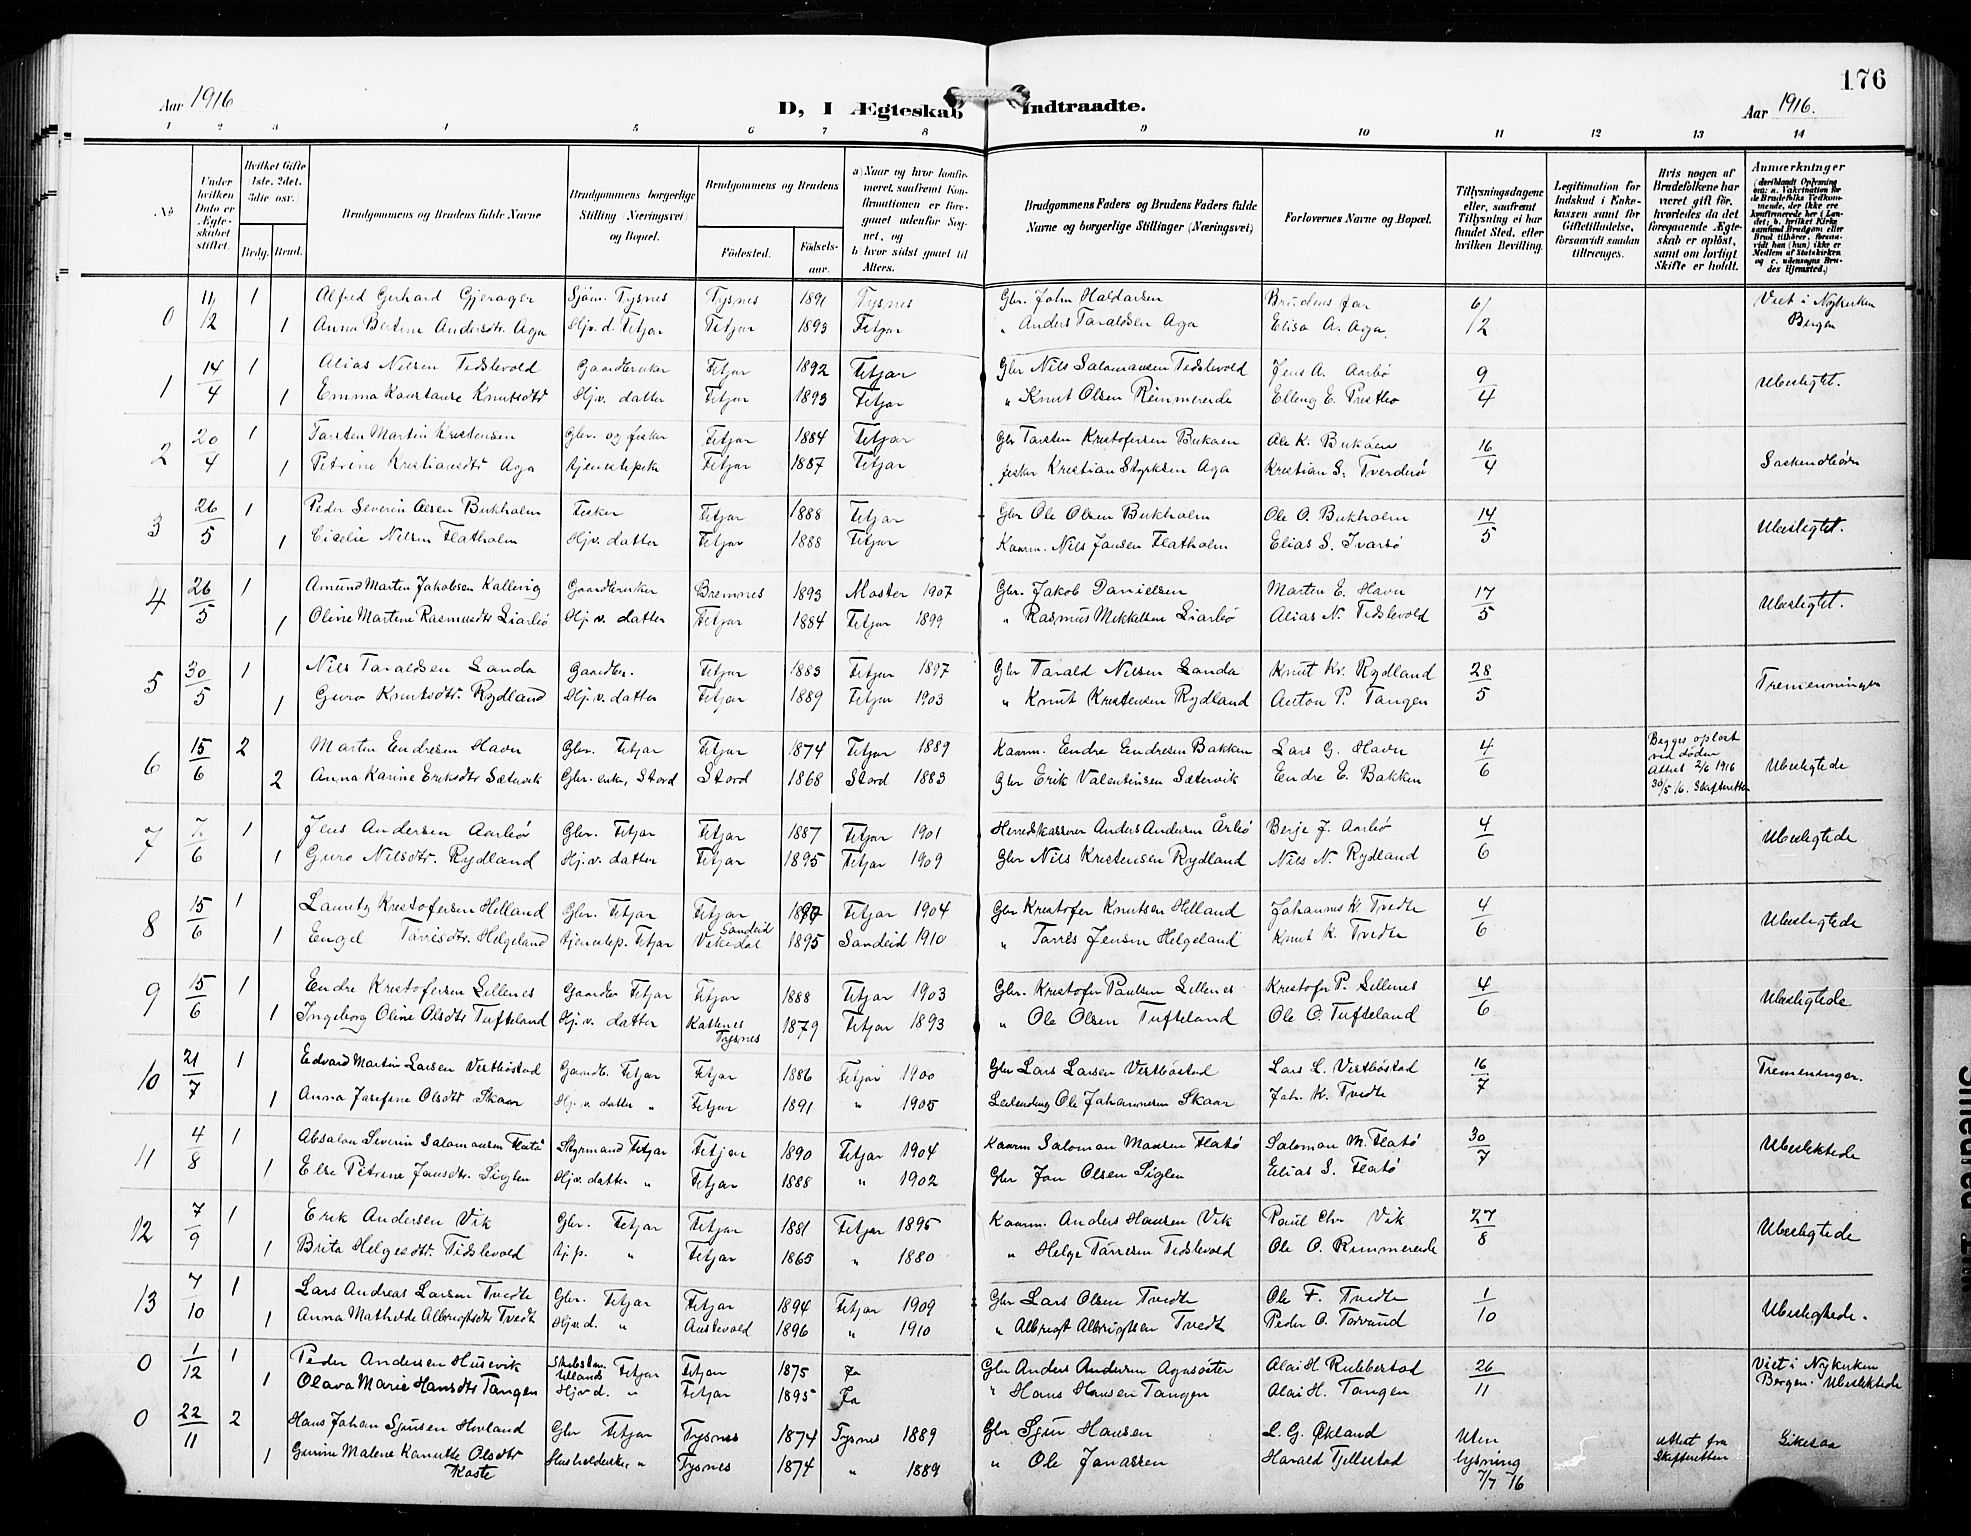 176
Aar 1916
D, I Ægteskab Indtraadte.
Aar 1916.
1 2 3 4 5 6 7 8 9 10 11 12 13 14
No
Under hvilken Dato er Ægteskabet stiftet.
Hvilket Gifte 1ste, 2det, 3die osv.)
Brdg. Brud.
Brudgommens og Brudens fulde Navne
Brudgommens borgerlige Stilling (Næringsvei) og Bopæl.
Brudgommens og Brudens
Fødested. Fødselsaar.
a) Naar og hvor konfirmeret, saafremt Konfirmationen er foregaaet udenfor Sognet, og
b) hvor sidst gaaet til Alters.
Brudgommens Faders og Brudens Faders fulde Navne og borgerlige Stillinger (Næringsvei)
Forlovernes Navne og Bopæl.
Tillysningsdagene eller, saafremt Tillysning ei har fundet Sted, efter hvilken Bevilling.
Legitimation for Indskud i Enkekassen samt for Giftetilladelse, forsaavidt saadan tiltrænges.
Hvis nogen af Brudefolkene har været gift før, hvorledes da det foregaaende Ægteskab er opløst, samt om lovligt Skifte er holdt.
Anmærkninger
(deriblandt Oplysning om: a. Vakcination for de Brudefolks Vedkommende, der ikke ere konfirmerede her i Landet; b. hvilket Kirkesamfund Brudgom eller Brud tilhører, forsaavidt han (hun) ikke er Medlem af Statskirken og c. udensogns Brudes Hjemsted.)
0 11/12 1 Alfred Gerhard Gjerager Sjøm. Tysnes Tysnes 1891 Tysnes Gbr. John Haldorsen Brudens far 6/12 Viet i Nykirken
1 Anna Bertine Andersdtr Aga Hj.v.d. Fitjar Fitjar 1893 Fitjar " Anders Taraldsen Aga Elisa A. Aga Bergen
1 14/4 1 Alias Nilsen Tidslevold Gaardbruker Fitjar 1892 Fitjar Gbr Nils Salamonsen Tidslevold Jens A. Aarbø 9/4 Ubeslegtet.
1 Emma Konstanse Knutsdtr Hj.v. datter Fitjar 1893 Fitjar " Knut Olsen Rimmereide Elling E. Prestbo
2 20/4 1 Torsten Martin Kristensen Gbr. og fisker Fitjar 1884 Fitjar Gbr Torsten Kristofersen Bukøen Ole K. Bukøen 16/4 Søskendbørn
1 Petrine Kristiansdtr Aga Tjenestepike Fitjar 1887 Fitjar fisker Kristian Styrksen Aga Kristian S. Tverderø
3 26/5 1 Peder Severin Olsen Bukholm Fisker Fitjar 1888 Fitjar Gbr Ole Olsen Bukholm Ole O. Bukholm 14/5 Ubeslegtet.
1 Cicelie Nilsen Flatholm Hj.v. datter Fitjar 1888 Fitjar Kaarm. Nils Jansen Flatholm Elias S. Ivarsø
4 26/5 1 Amund Martin Jakobsen Kallevig Gaardbruker Bremnes 1893 Moster 1907 Gbr. Jakob Danielsen Marten E. Havn 17/5 Ubeslegtet.
1 Oline Martine Rasmusdtr Liarbø Hj.v. datter Fitjar 1884 Fitjar 1899 " Rasmus Mikkelsen Liarbø Alias N. Tidslevold
5 30/5 1 Nils Taraldsen Landa Gaardbr. Fitjar 1883 Fitjar 1897 Gbr Tarald Nilsen Landa Knut Kr. Rydland 28/5 Tremenninger
1 Guro Knutsdtr. Rydland Hj.v. datter Fitjar 1889 Fitjar 1903 " Knut Kristensen Rydland Anton P. Tangen
6 15/6 2 Martin Endresen Havn Gbr. Fitjar Fitjar 1874 Fitjar 1889 Kaarm. Endre Endresen Bakken Lars G. Havn 4/6 Begges opløst ved døden Attest 2/6 1916 30/5 16. Skifteretten Ubeslegtede
2 Anna Karine Eriksdtr Sætervik Gbr. enke, Stord Stord 1868 Stord 1883 Gbr Erik Valentinsen Sætervik Endre E. Bakken
7 7/6 1 Jens Andersen Aarbø Gbr. Fitjar Fitjar 1887 Fitjar 1901 Herredskasserer Anders Andersen Årbø Berje J. Aarbø 4/6 Ubeslegtede
1 Guro Nilsdtr. Rydland Hj.v. datter Fitjar 1895 Fitjar 1909 Gbr Nils Kristensen Rydland Nils N. Rydland
8 15/6 1 Lauritz Kristofersen Helland Gbr. Fitjar Fitjar Fitjar 1904 Gbr Kristofer Knutsen Helland Johannes K. Tvedte 4/6 Ubeslegtede
1 Engel Tørrisdtr. Helgeland tjenestep. Fitjar Sandeid Vikedal 1895 Sandeid 1910 " Tørres Jensen Helgeland Knut K. Tvedte
9 15/6 1 Endre Kristofersen Lillenes Gaardbr Fitjar Fitjar 1888 Fitjar 1903 Gbr. Kristofer Paulsen Lillenes Kristofer P. Lillenes 4/6 Ubeslegtede
1 Ingeborg Oline Olsdtr Tufteland Hj.v. datter Tysnes 1879 Fitjar 1893 " Ole Olsen Tufteland Ole O. Tufteland
10 21/7 1 Edvard Martin Larsen Vestbøstad Gaardb. Fitjar Fitjar 1886 Fitjar 1900 Gbr Lars Larsen Vestbøstad Lars L. Vestbøstad 16/7 Tremeninger.
1 Anna Josefine Olsdtr Skaar Hj.v. datter " Fitjar 1891 " 1905 Leilending Ole Johannesen Skaar Joh. K. Tvedte
11 4/8 1 Absalon Severin Salamonsen Flatø Styrmand Fitjar Fitjar 1890 Fitjar 1904 Kaarm Salomon Monsen Flatø Salomon M. Flatø 30/7 Ubeslektede
1 Else Petrine Jansdtr. Siglen Hj.v. datter " Fitjar 1888 " 1902 Gbr Jan Olsen Siglen Elias S. Flatø
12 7/9 1 Erik Andersen Vik Gbr. Fitjar Fitjar 1881 Fitjar 1895 Kaarm. Anders Hansen Vik Paul Chr Vik 27/8 Ubeslegtede
1 Brita Helgesdtr. Tidslevold tj.p. " Fitjar 1865 " 1880 " Helge Tørresen Tidslevold Ole O. Rimmereide
13 7/10 1 Lars Andreas Larsen Tvedte Gbr. Fitjar Fitjar 1894 Fitjar 1909 Gbr Lars Olsen Tvedte Ole F. Tvedte 1/10 Ubeslegtede.
1 Anna Mathilde Albrigtsdtr Tvedt Hj.v.d. " Austevold 1896 " 1910 " Albrigt Albrigtsen Tvedt Peder O. Torsund
0 1/12 1 Peder Andersen Husevik Fitjar Fitjar 1875 Ja Gbr Anders Andersen Agasøster Alai H. Rubbestad 26/11 Viet i Nykirken
1 Olava Marie Hansdtr Tangen Hj.v.d. " Fitjar 1895 Ja " Hans Hansen Tangen Alai H. Tangen Bergen. Ubeslektede
0 22/11 2 Hans Johan Sjursen Hovland Gbr Fitjar Tysnes 1874 Tysnes 1889 Gbr Sjur Hansen L. G. Økland Uten lysning 7/7 16 attest fra Skifteretten
1 Gurine Malene Kanutte Olsdtr Koste Husholderske " Tysnes 1874 " 1889 " Ole Jonassen Harald Tjellestad